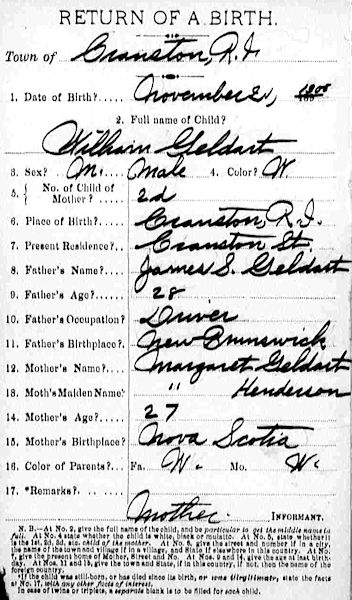 RETURN OF A BIRTH.
Town of Cranston, R.I.
1. Date of Birth? November 21, 189
2. Full name of Child?
William Geldart
3. Sex? M. Male 4. Color? W
5. { No. of Child of Mother? } 2d
6. Place of Birth? Cranston, R.I.
7. Present Residence? Cranston St.
8. Father's Name? James S. Geldart
9. Father's Age? 28
10. Father's Occupation? Driver
11. Father's Birthplace? New Brunswick
12. Mother's Name? Margaret Geldart
13. Moth's Maiden Name? " Henderson
14. Mother's Age? 27
15. Mother's Birthplace? Nova Scotia
16. Color of Parents? Fa. W. Mo. W.
17. *Remarks?
Mother. INFORMANT.
N. B.—At No. 2, give the full name of the child, and be particular to get the middle name in
full. At No. 4 state whether the child is white, black or mulatto. At No. 5, state whether it
is the 1st, 2d, 3d, etc. child of the mother. At No. 6, give the street and number if in a city,
the name of the town and village if in a village, and State if elsewhere in this country. At No.
7, give the present home of Mother, Street and No. At Nos. 9 and 14, give the age at last birth-
day. At Nos. 11 and 15, give the town and State, if in this country, if not, then the name of
the foreign country.
*If the child was still-born, or has died since its birth, or was illegitimate, state the facts
at No. 17, with any other facts of interest.
In case of twins or triplets, a separate blank is to be filled for each child.